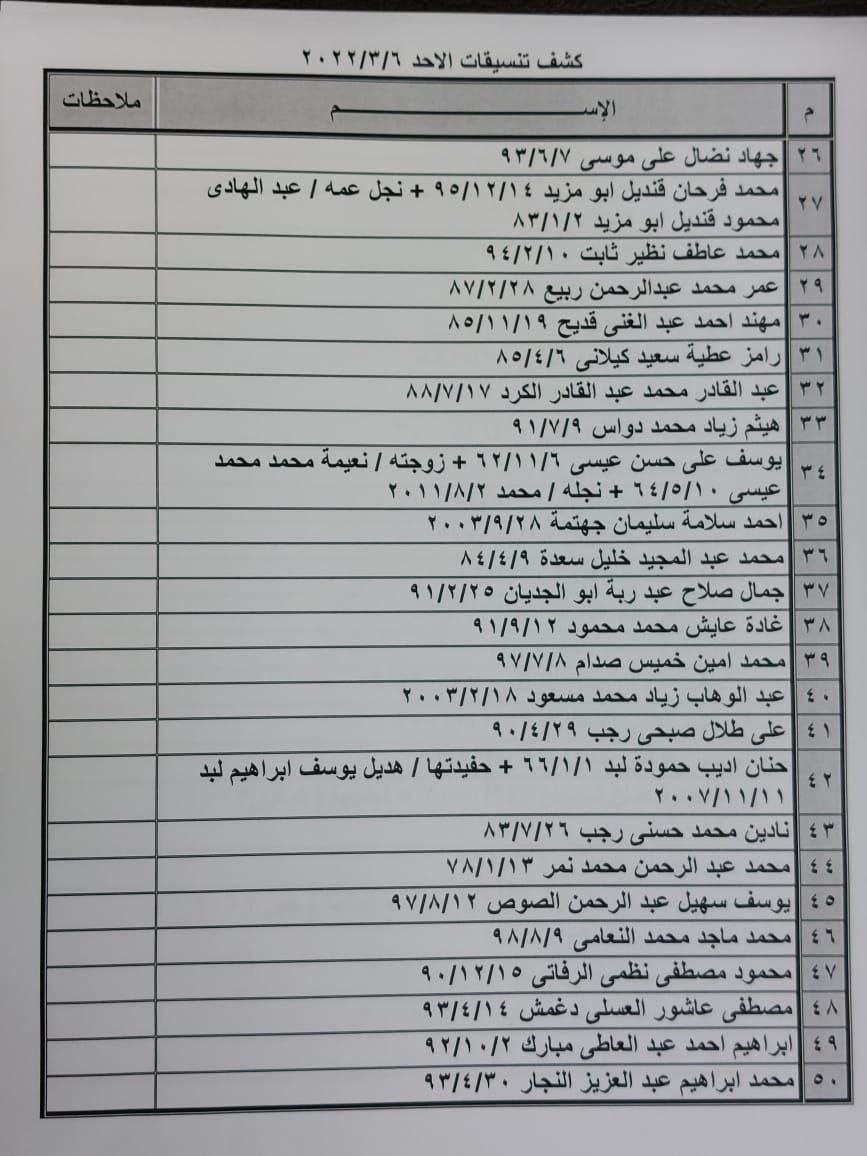 كشف تنسيقات الاحد ٢٠٢٢/٣/٦
م الإســـــم ملاحظات
٢٦ جهاد نضال على موسى ٩٣/٦/٧
٢٧ محمد فرحان قنديل ابو مزيد ٩٥/١٢/١٤ + نجل عمه / عبد الهادى
محمود قنديل ابو مزيد ٨٣/١/٢
٢٨ محمد عاطف نظير ثابت ٩٤/٢/١٠
٢٩ عمر محمد عبدالرحمن ربيع ٨٧/٢/٢٨
٣٠ مهند احمد عبد الغنى قديح ٨٥/١١/١٩
٣١ رامز عطية سعيد كيلانى ٨٥/٤/٦
٣٢ عبد القادر محمد عبد القادر الكرد ٨٨/٧/١٧
٣٣ هيثم زياد محمد دواس ٩١/٧/٩
٣٤ يوسف على حسن عيسى ٦٢/١١/٦ + زوجته / نعيمة محمد محمد
عيسى ٦٤/٥/١٠ + نجله / محمد ٢٠١١/٨/٢
٣٥ احمد سلامة سليمان جهتمة ٢٠٠٣/٩/٢٨
٣٦ محمد عبد المجيد خليل سعدة ٨٤/٤/٩
٣٧ جمال صلاح عبد ربة ابو الجديان ٩١/٢/٢٥
٣٨ غادة عايش محمد محمود ٩١/٩/١٢
٣٩ محمد امين خميس صدام ٩٧/٧/٨
٤٠ عبد الوهاب زياد محمد مسعود ٢٠٠٣/٢/١٨
٤١ على طلال صبحى رجب ٩٠/٤/٢٩
٤٢ حنان اديب حمودة لبد ٦٦/١/١ + حفيدتها / هديل يوسف ابراهيم لبد
٢٠٠٧/١١/١١
٤٣ نادين محمد حسنى رجب ٨٣/٧/٢٦
٤٤ محمد عبد الرحمن محمد نمر ٧٨/١/١٣
٤٥ يوسف سهيل عبد الرحمن الصوص ٩٧/٨/١٢
٤٦ محمد ماجد محمد النعامى ٩٨/٨/٩
٤٧ محمود مصطفى نظمى الرفاتى ٩٠/١٢/١٥
٤٨ مصطفى عاشور العسلى دغمش ٩٣/٤/١٤
٤٩ ابراهيم احمد عبد العاطى مبارك ٩٢/١٠/٢
٥٠ محمد ابراهيم عبد العزيز النجار ٩٣/٤/٣٠